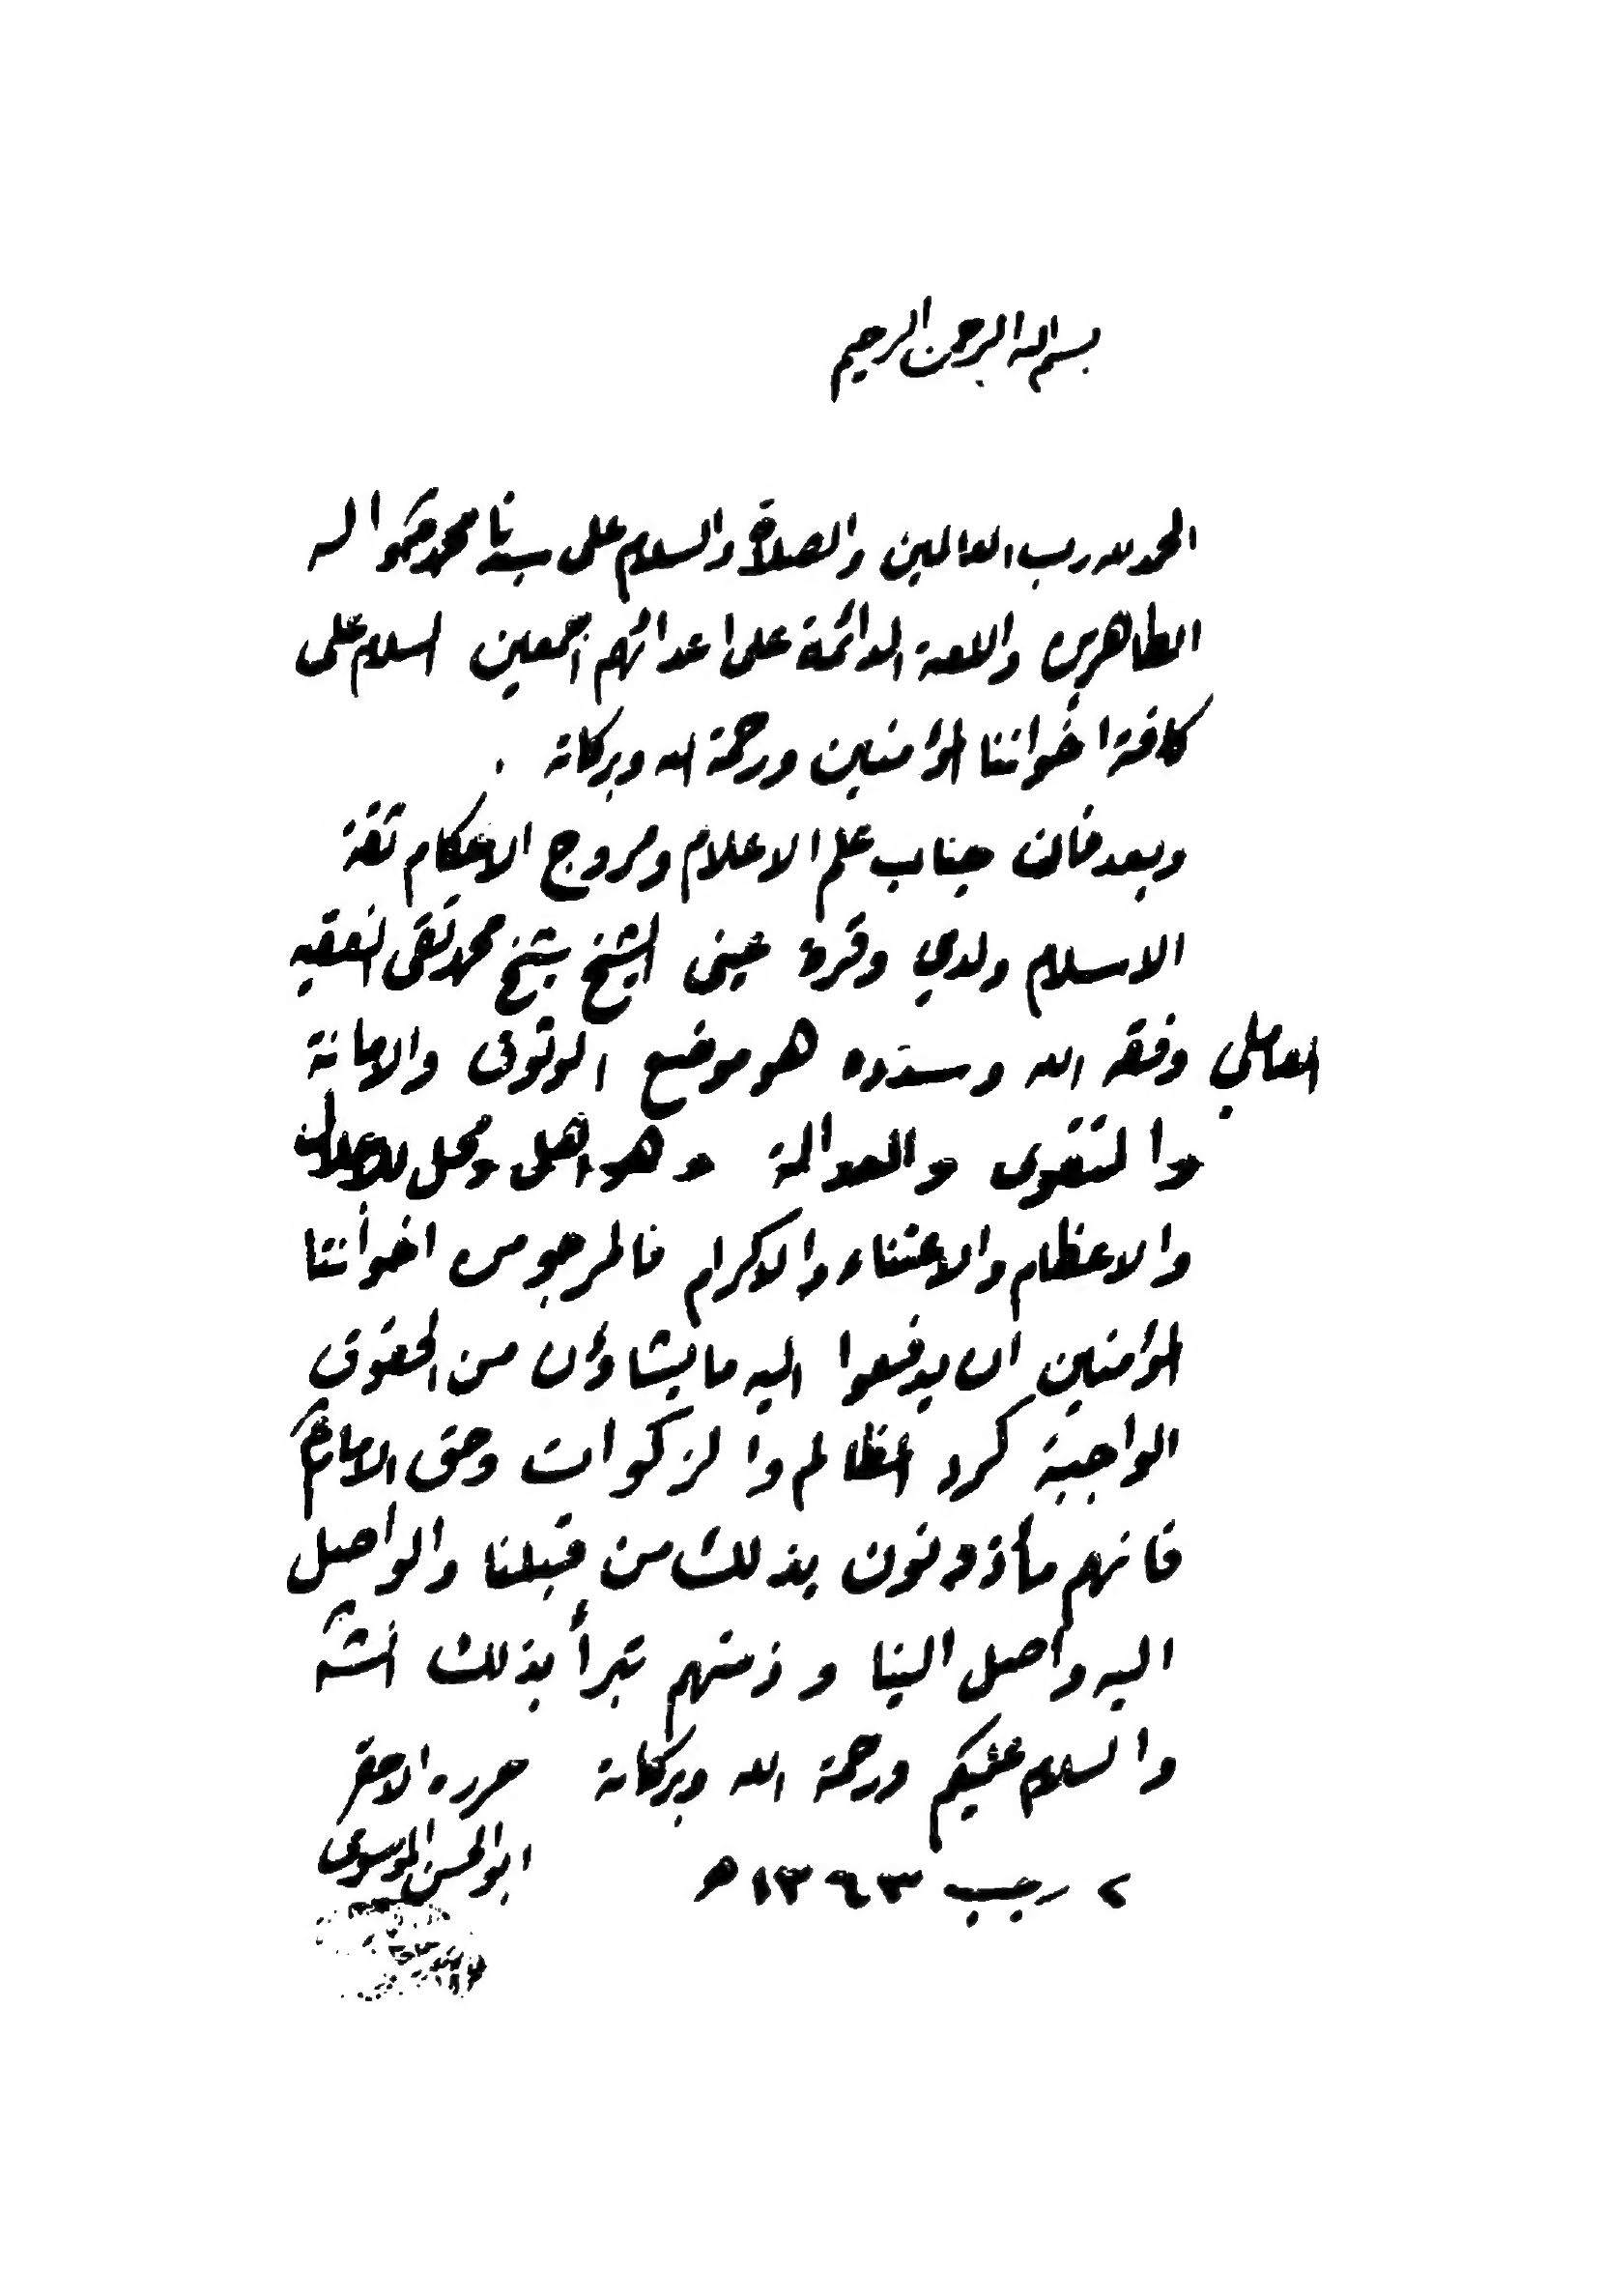 بسم الله الرحمن الرحيم
الحمد لله رب العالمين والصلاة والسلام على سيدنا محمد واله
الطاهرين واللعنة الدائمة على اعدائهم اجمعين السلام على
كافة اخواننا المؤمنين ورحمة الله وبركاته .
وبعد فان جناب علم الاعلام ومروج الاحكام ثقة
الاسلام ولدي وقرة عيني الشيخ شيخ محمد تقي الفقيه
العاملي وفقه الله وسدده هو موضع الوثوق والامانة
والتقوى والعدالة وهو اهل ومحل للاجلال
والاعظام والاعتناء والاكرام فالمرجو من اخواننا
المؤمنين ان يدفعوا اليه ما يشاؤن من الحقوق
الواجبة كرد المظالم والزكوات وحق الامام ع
فانهم مأذونون بذلك من قبلنا والواصل
اليه واصل الينا وذمتهم تبرأ بذلك انشه
والسلام عليكم ورحمة الله وبركاته حرره الاحقر
ابو الحسن الموسوى
٢ رجب ١٣٦٣ ه